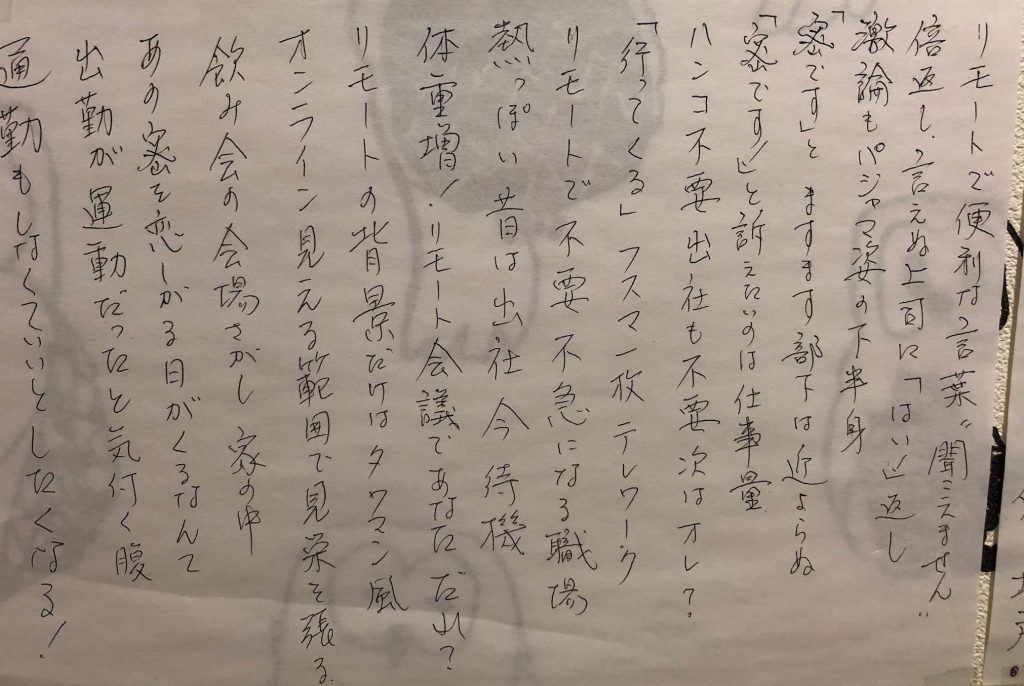 リモートで便利な言葉"聞こえません"
倍返し、言えぬ上司に「はい」返し
激論もパジャマ姿の下半身
「密です」と ますます部下は近よらぬ
「密です!」と訴えたいのは仕事量
ハンコ不要出社も不要次はオレ?
「行ってくる」フスマ一枚テレワーク
リモートで不要不急になる職場
熱っぽい 昔は出社 今待機
体重増!リモート会議であなただれ?
リモートの背景だけはタワマン風
オンライン見える範囲で見栄を張る
飲み会の会場さがし 家の中
あの密を恋しがる日がくるなんて
出勤が運動だったと気付く腹
通勤もしなくていいとしたくなる!